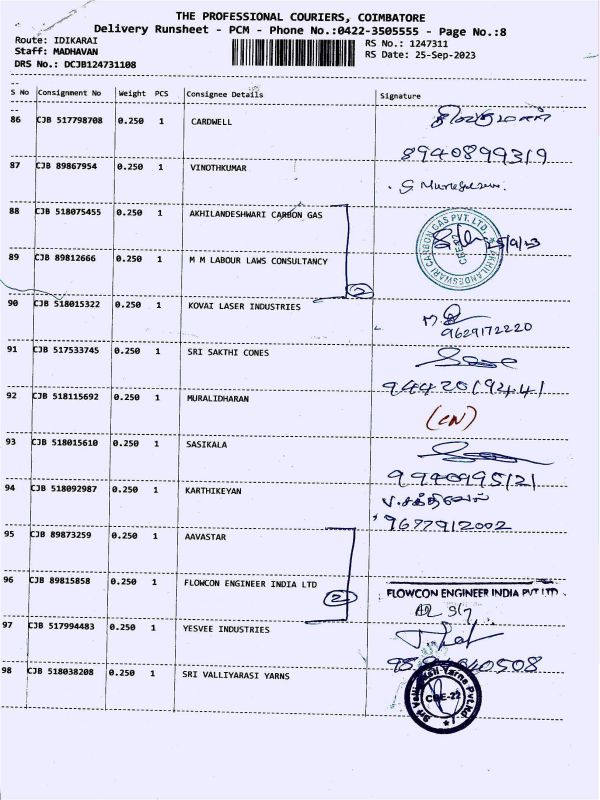 THE PROFESSIONAL COURIERS, COIMBATORE
Delivery Runsheet - PCM - Phone No.:0422-3505555 - Page No.:8
Route: IDIKARAI RS No.: 1247311
Staff: MADHAVAN RS Date: 25-Sep-2023
DRS No.: DCJB124731108
S No Consignment No Weight PCS Consignee Details Signature
86 CJB 517798708 0.250 1 CARDWELL
8940899319
87 CJB 89867954 0.250 1 VINOTHKUMAR
88 CJB 518075455 0.250 1 AKHILANDESHWARI CARBON GAS
AKHILANDESWARI CARBON GAS PVT. LTD. 25/9/23
89 CJB 89812666 0.250 1 M M LABOUR LAWS CONSULTANCY
2
90 CJB 518015322 0.250 1 KOVAI LASER INDUSTRIES
9629172220
91 CJB 517533745 0.250 1 SRI SAKTHI CONES
9442019441
92 CJB 518115692 0.250 1 MURALIDHARAN
(CN)
93 CJB 518015610 0.250 1 SASIKALA
9940995121
94 CJB 518092987 0.250 1 KARTHIKEYAN
வ.சக்திவேல்
9677912002
95 CJB 89873259 0.250 1 AAVASTAR
96 CJB 89815858 0.250 1 FLOWCON ENGINEER INDIA LTD
2
FLOWCON ENGINEER INDIA PVT LTD.
97 CJB 517994483 0.250 1 YESVEE INDUSTRIES
98 CJB 518038208 0.250 1 SRI VALLIYARASI YARNS
CBE-22